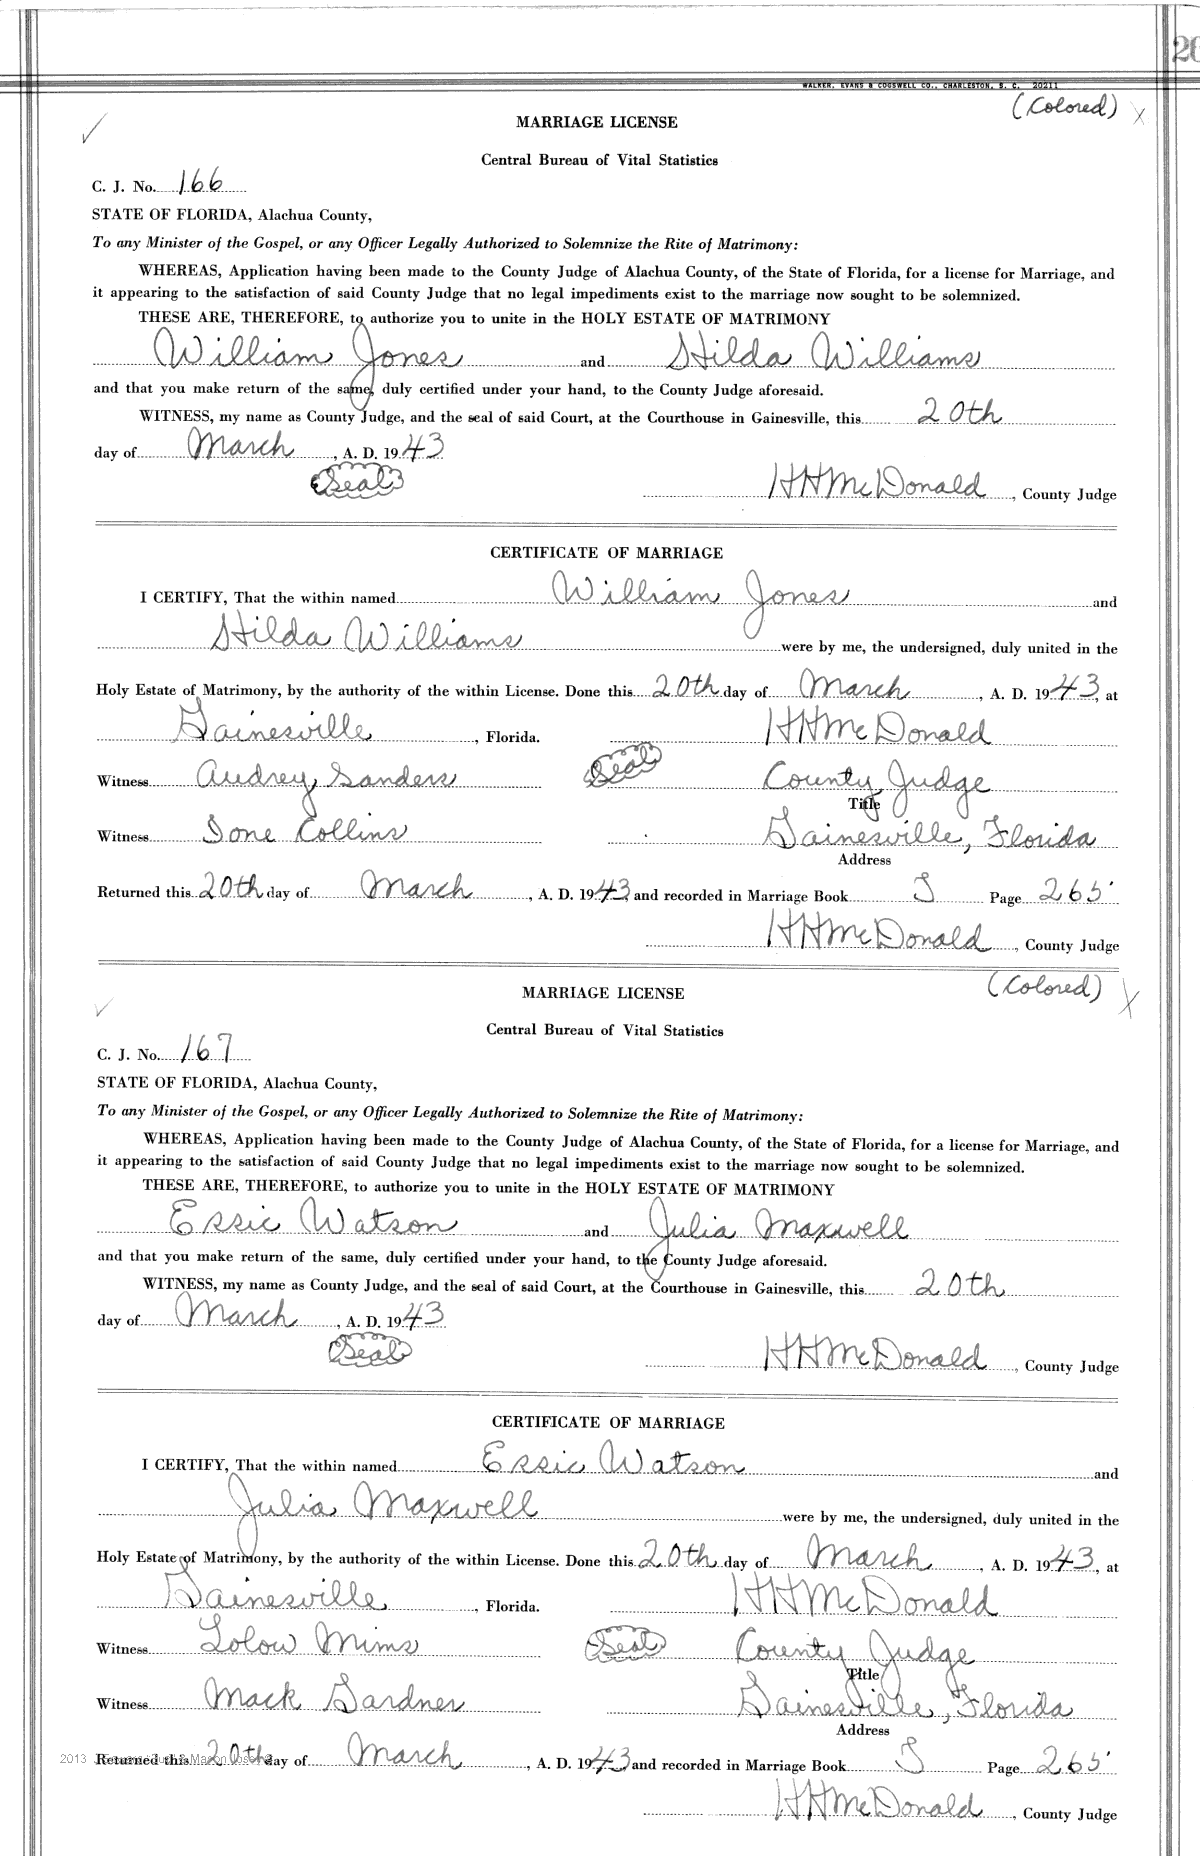 20
WALKER, EVANS & COGSWELL CO., CHARLESTON, S. C. 20211
(Colored) X
MARRIAGE LICENSE
Central Bureau of Vital Statistics
C. J. No. 166
STATE OF FLORIDA, Alachua County,
To any Minister of the Gospel, or any Officer Legally Authorized to Solemnize the Rite of Matrimony:
WHEREAS, Application having been made to the County Judge of Alachua County, of the State of Florida, for a license for Marriage, and
it appearing to the satisfaction of said County Judge that no legal impediments exist to the marriage now sought to be solemnized.
THESE ARE, THEREFORE, to authorize you to unite in the HOLY ESTATE OF MATRIMONY
William Jones and Hilda Williams
and that you make return of the same, duly certified under your hand, to the County Judge aforesaid.
WITNESS, my name as County Judge, and the seal of said Court, at the Courthouse in Gainesville, this 20th
day of March, A. D. 1943
Seal HHMcDonald, County Judge
CERTIFICATE OF MARRIAGE
I CERTIFY, That the within named William Jones and
Hilda Williams were by me, the undersigned, duly united in the
Holy Estate of Matrimony, by the authority of the within License. Done this 20th day of March, A. D. 1943, at
Gainesville, Florida. HHMcDonald
Witness Audrey Sanders Seal County Judge
Title
Witness Ione Collins Gainesville, Florida
Address
Returned this 20th day of March, A. D. 1943 and recorded in Marriage Book Page 265
HHMcDonald, County Judge
(Colored) X
MARRIAGE LICENSE
Central Bureau of Vital Statistics
C. J. No. 167
STATE OF FLORIDA, Alachua County,
To any Minister of the Gospel, or any Officer Legally Authorized to Solemnize the Rite of Matrimony:
WHEREAS, Application having been made to the County Judge of Alachua County, of the State of Florida, for a license for Marriage, and
it appearing to the satisfaction of said County Judge that no legal impediments exist to the marriage now sought to be solemnized.
THESE ARE, THEREFORE, to authorize you to unite in the HOLY ESTATE OF MATRIMONY
Essic Watson and Julia Maxwell
and that you make return of the same, duly certified under your hand, to the County Judge aforesaid.
WITNESS, my name as County Judge, and the seal of said Court, at the Courthouse in Gainesville, this 20th
day of March, A. D. 1943
Seal HHMcDonald, County Judge
CERTIFICATE OF MARRIAGE
I CERTIFY, That the within named Essic Watson and
Julia Maxwell were by me, the undersigned, duly united in the
Holy Estate of Matrimony, by the authority of the within License. Done this 20th day of March, A. D. 1943, at
Gainesville, Florida. HHMcDonald
Witness Lolow Mims Seal County Judge
Title
Witness Mack Gardner Gainesville, Florida
Address
2013
Returned this 20th day of March, A. D. 1943 and recorded in Marriage Book Page 265
HHMcDonald, County Judge